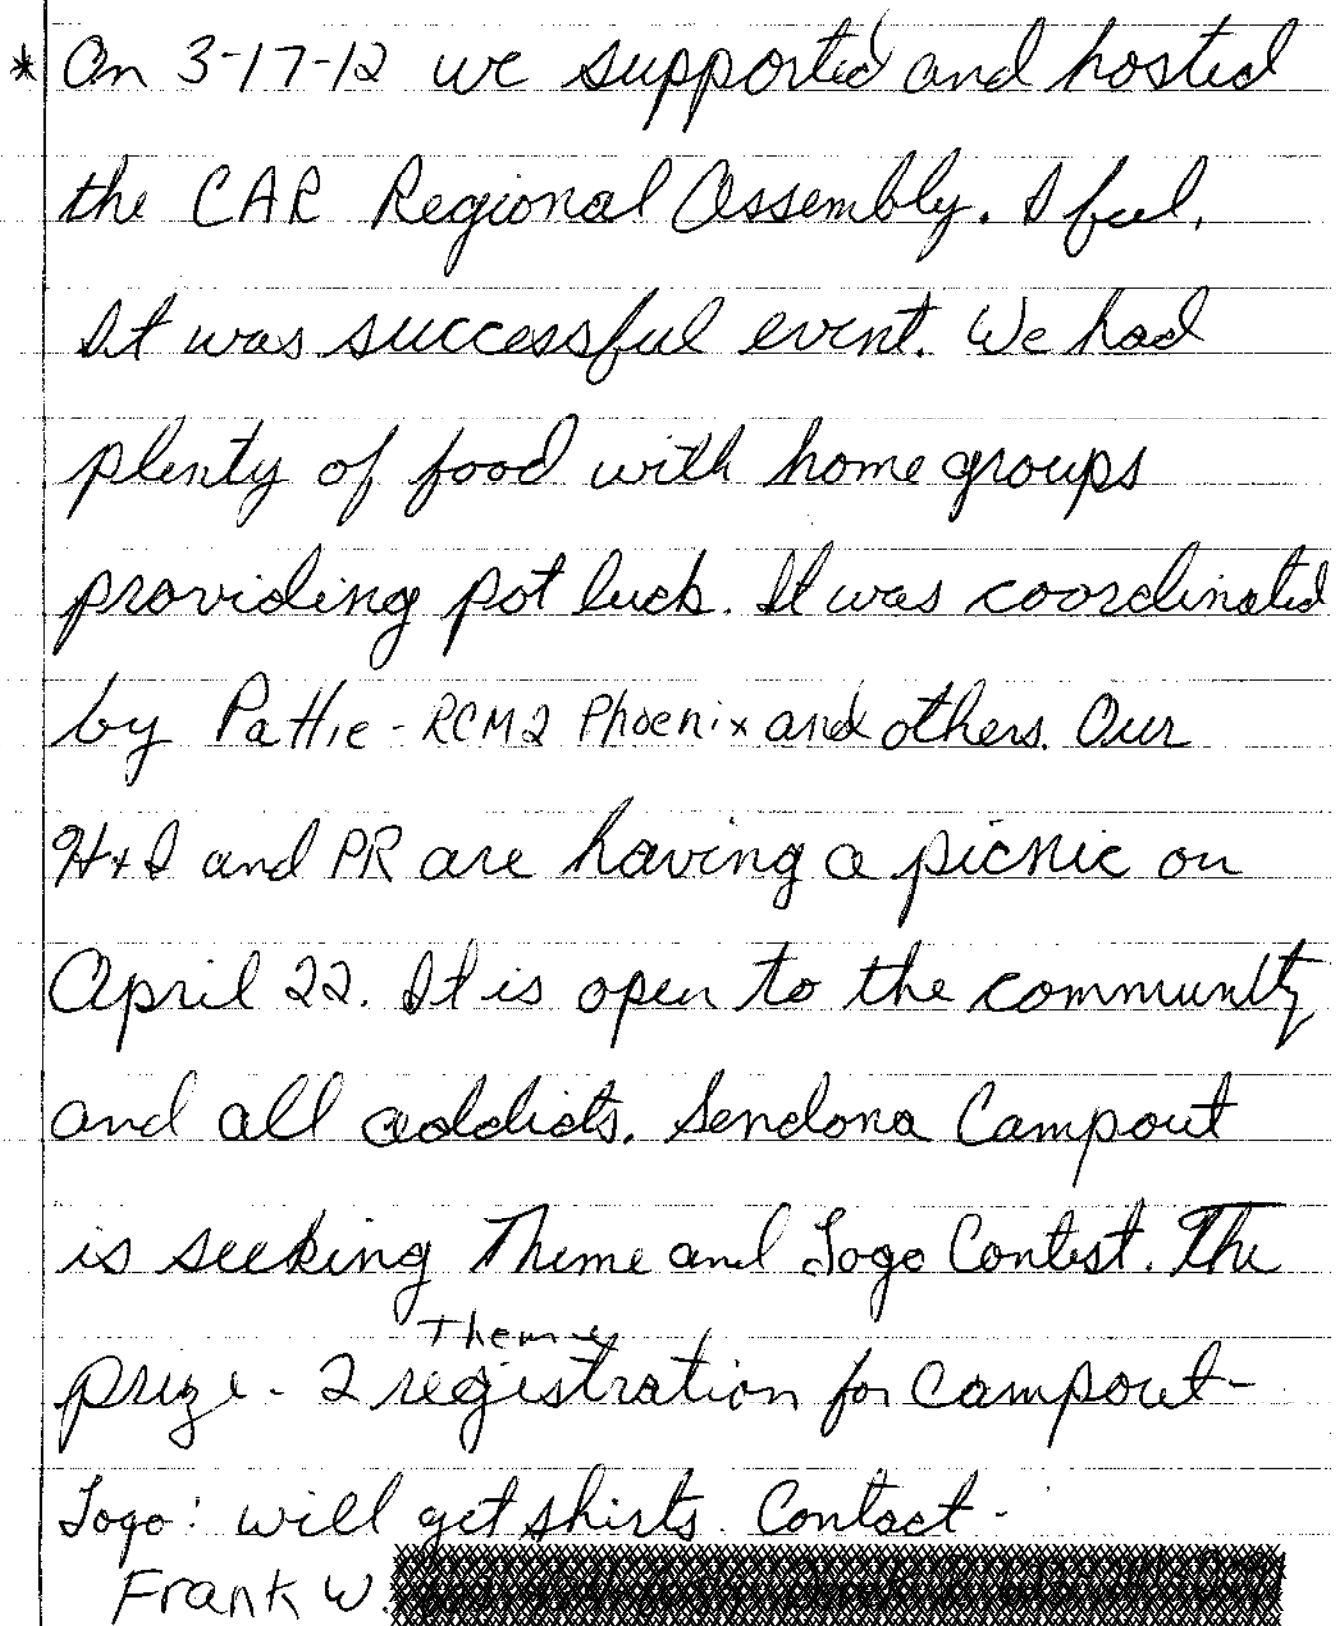 * On 3-17-12 we supported and hosted
the CAR Regional Assembly. I feel,
It was successful event. We had
plenty of food with home groups
providing pot luck. It was coordinated
by Pattie - RCM2 Phoenix and others. Our
H+I and PR are having a picnic on
April 22. It is open to the community
and all addicts. Sendona Campout
is seeking Theme and Logo Contest. The
Theme
prize - 2 registration for Campout -
Logo: will get shirts. Contact -
Frank W.